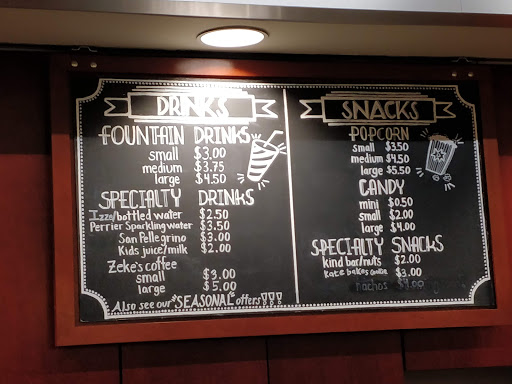 DRINKS
FOUNTAIN DRINKS
small $3.00
medium $3.75
large $4.50
SPECIALTY DRINKS
Izze/bottled water $2.50
Perrier Sparkling water $3.50
San Pellegrino $3.00
Kids juice/milk $2.00
Zeke's coffee
small $3.00
large $5.00
Also see our *SEASONAL* offers!!!
SNACKS
POPCORN
small $3.50
medium $4.50
large $5.50
CANDY
mini $0.50
small $2.00
large $4.00
SPECIALTY SNACKS
kind bar/nuts $2.00
kate bakes $3.00
nachos